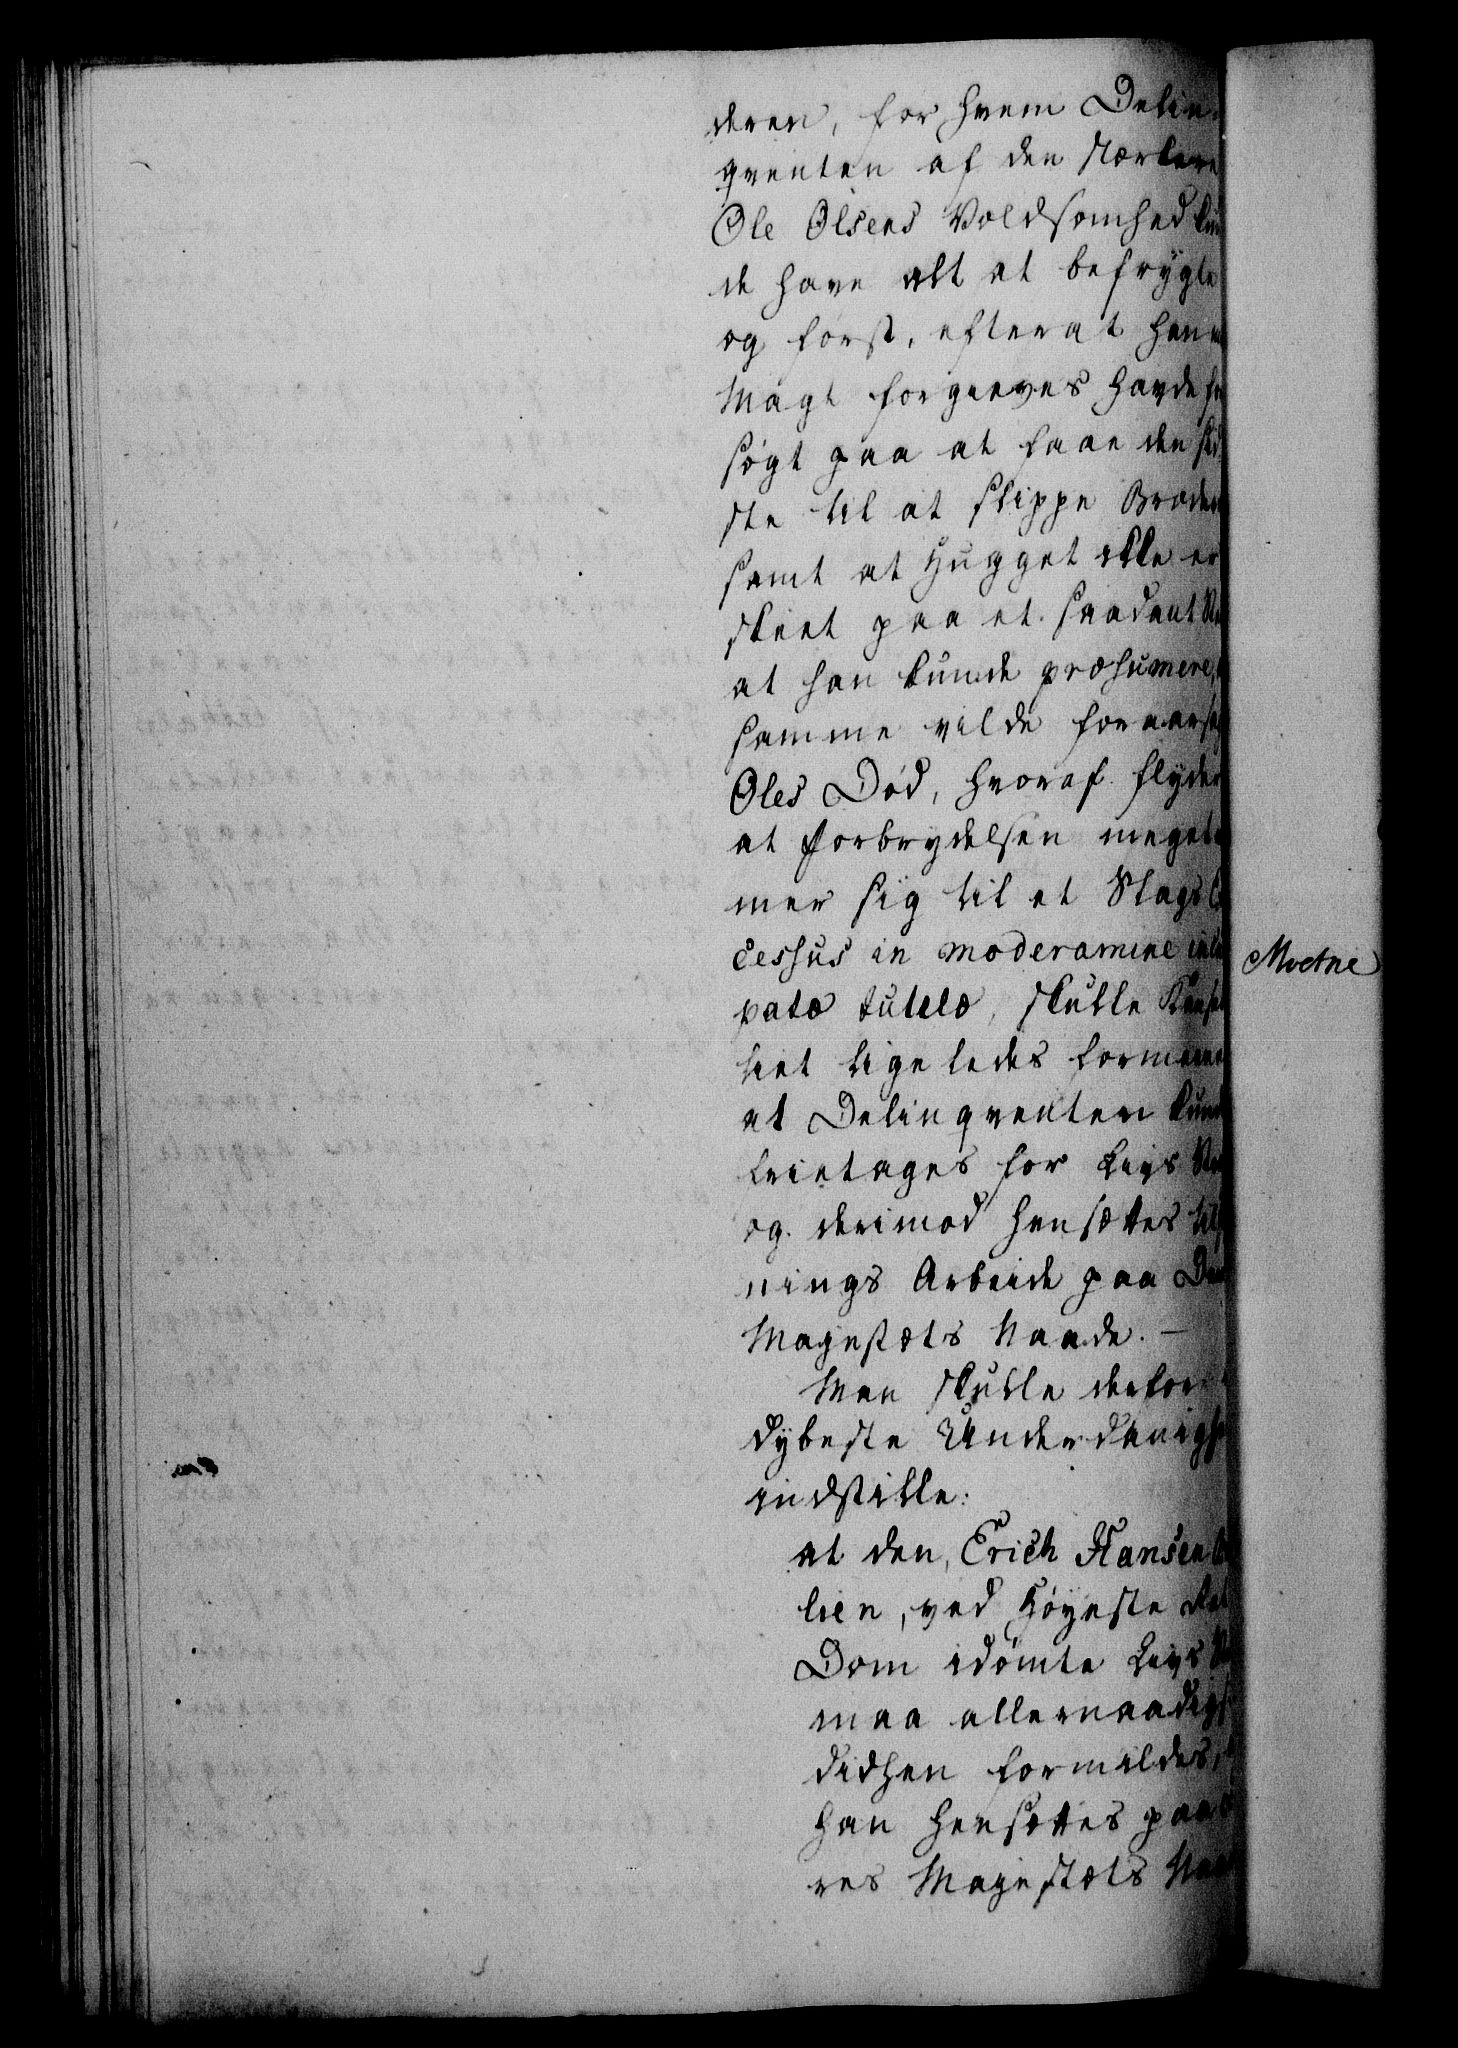 deren, for hvem Delin-
qventen af den stærkere
Ole Olsens Voldsomhed kun
de have alt at befrygte
og først, efterat han m
Magt forgieves havde for
søgt paa at faae den sid
ste til at slippe Broder
samt at Hugget ikke er
skeet paa et saadant St
at han kunde præsumere,
samme vilde foraarsag
Oles Død, hvoraf flyder
at Forbrydelsen meget
mer sig til et Slags Ex
cessus in moderamine incul
patæ tutelæ, skulle Kancel
liet ligeledes formeene
at Delinqventen kund
benetages for Livs St
og derimod hensættes til F
nings Arbeide paa Deres
Majestæts Naade. —
Man skulle derfor i
dybeste Underdanighed
indstille:
at den, Erich Hansen
lien, ved Høyeste Ret
Dom idømte Livs St
maa allernaadigst
didhen formildes,
han hensættes paa De
res Majestæts Naa
Moetne